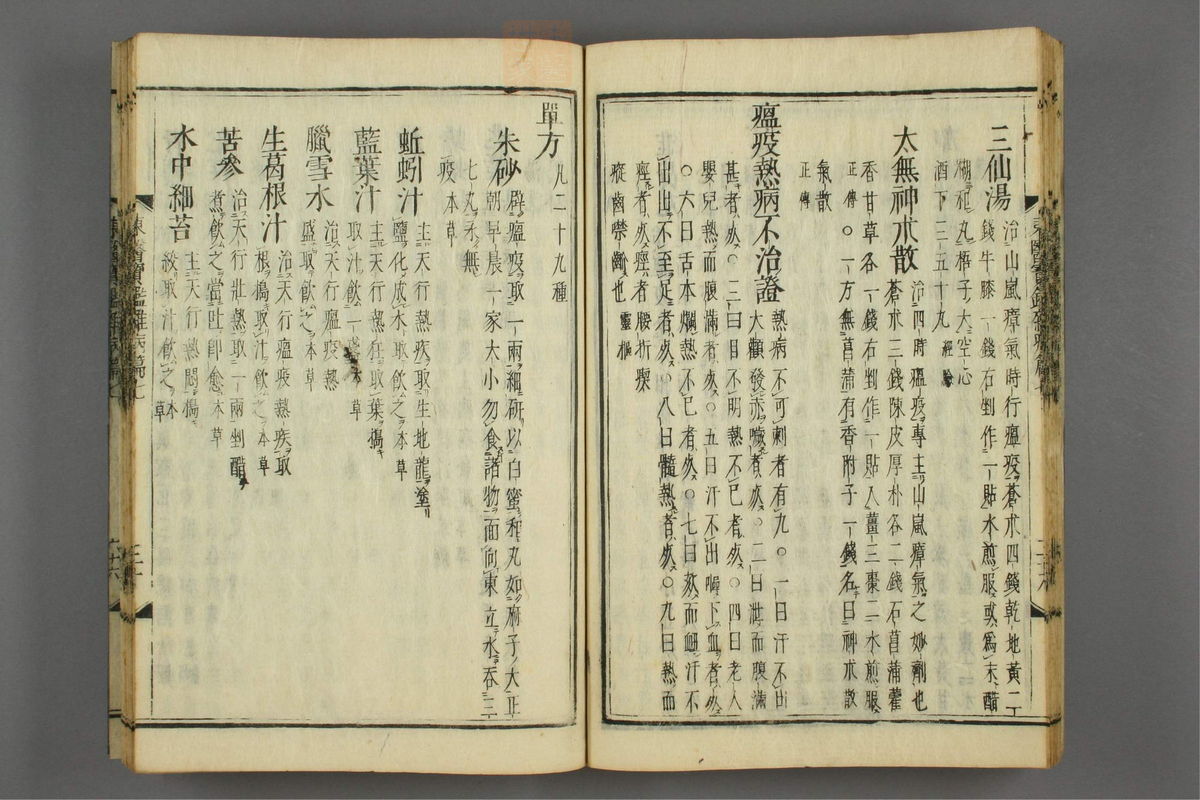 三仙湯 治山嵐瘴氣時行瘟疫蒼朮四錢乾地黃二
錢牛膝一錢右剉作一貼水煎服或爲末醋
糊和丸梧子大空心
酒下三五十丸 經驗
太無神朮散 治四時瘟疫專主山嵐瘴氣之妙劑也
蒼朮三錢陳皮厚朴各二錢石菖蒲藿
香甘草各一錢右剉作一貼入薑三棗二水煎服
正傳○一方無菖蒲有香附子一錢名曰神朮散
氣散
正傳
瘟疫熱病不治證 熱病不可刺者有九○一曰汗不出
大顴發赤噦者死○二曰泄而腹滿
甚者死○三曰目不明熱不已者死○四曰老人
嬰兒熱而腹滿者死○五曰汗不出嘔下血者死
○六曰舌本爛熱不已者死○七曰欬而衄汗不
出出不至足者死○八曰髓熱者死○九曰熱而
痙者死痙者腰折瘈
瘲齒噤齘也 靈樞
單方 凡二十九種
朱砂 辟瘟疫取一兩細研以白蜜和丸如麻子大正
朝早晨一家大小勿食諸物面向東立水吞三
七丸永無
疫 本草
蚯蚓汁 主天行熱疾取生地龍塗
鹽化成水取飮之 本草
藍葉汁 主天行熱狂取葉搗
取汁飮一盞 本草
臘雪水 治天行瘟疫熱
盛取飮之 本草
生葛根汁 治天行瘟疫熱疾取
根搗取汁飮之 本草
苦參 治天行壯熱取一兩剉醋
煮飮之當吐卽愈 本草
水中細苔 主天行熱悶搗
絞取汁飮之 本草